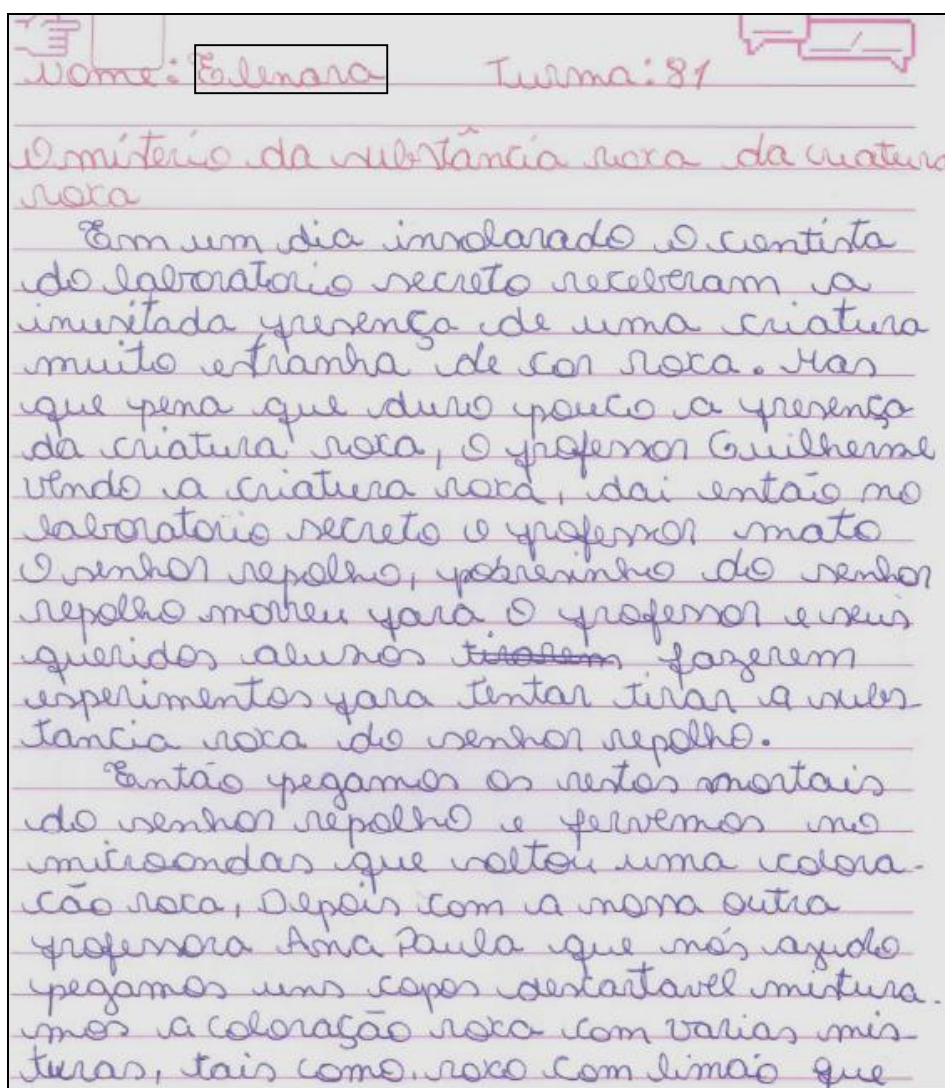 Nome: Elenara Turma: 81
O mistério da substância roxa da criatura
roxa
Em um dia insolarado o centista
do laboratorio secreto receberam a
inusitada presença de uma criatura
muito estranha de cor roxa. Mas
que pena que duro pouco a presença
da criatura roxa, o professor Guilherme
vendo a criatura roxa, dai então no
laboratorio secreto o professor mato
O senhor repolho, pobresinho do senhor
repolho morreu para o professor e seus
queridos alunos tirarem fazerem
esperimentos para tentar tirar a subs
tancia roxa do senhor repolho.
Então pegamos os restos mortais
do senhor repolho e fervemos no
microondas que soltou uma colora-
cão roxa, Depois com a nossa outra
professora Ana Paula que nós ajudo
pegamos uns copos descartavel mistura-
mos a coloração roxa com varias mis-
turas, tais como. roxo com limão que